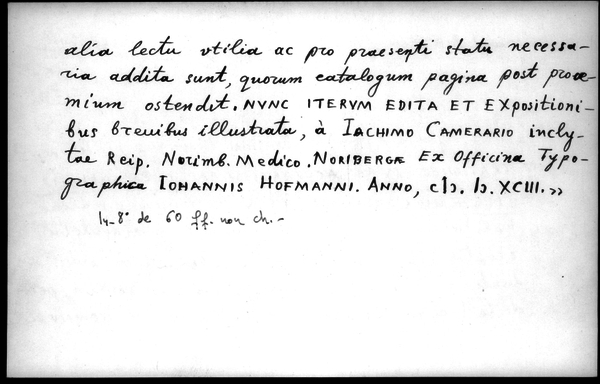 alia lectu vtilia ac pro praesenti statu necessa-
ria addita sunt, quorum catalogum pagina post prooe-
mium ostendit. NVNC ITERVM EDITA ET EXpositioni-
bus breuibus illustrata, à IACHIMO CAMERARIO incly-
tae Reip. Norimb. Medico. NORIBERGÆ Ex Officina Typo-
graphica IOHANNIS HOFMANNI. ANNO, cIɔ. Iɔ. XCIII. »
In-8° de 60 ff. non ch. -